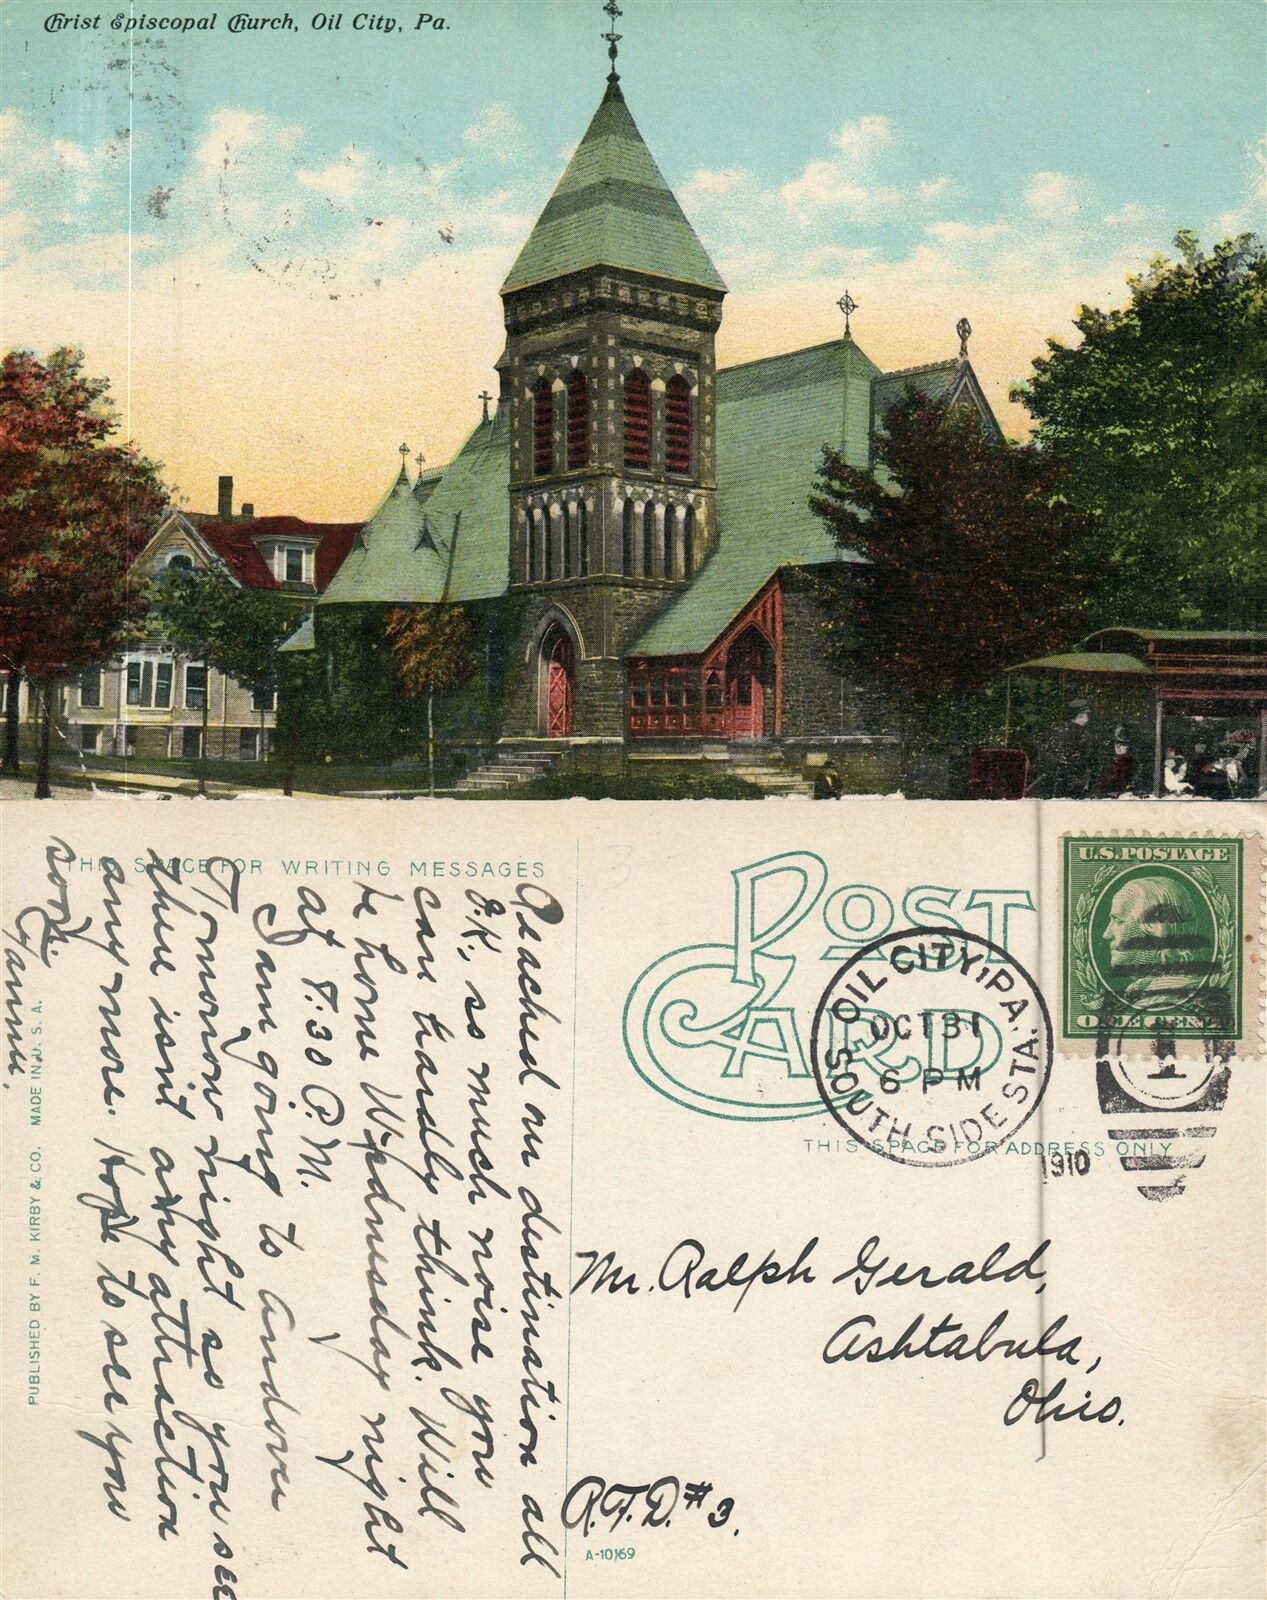 Christ Episcopal Church, Oil City, Pa.
THIS SPACE FOR WRITING MESSAGES
Reached my destination all
O.K., so much noise you
can hardly think. Will
be home Wednesday night
at 8:30 P.M.
I am going to Andover
Tomorrow night so you see
there isn't any attraction
any more. Hope to see you
soon.
Fannie.
PUBLISHED BY F. M. KIRBY & CO. MADE IN U. S. A.
POST
CARD
THIS SPACE FOR ADDRESS ONLY
U.S. POSTAGE
ONE CENT
OIL CITY, PA.
OCT 31
6 PM
SOUTH SIDE STA.
1910
1
Mr. Ralph Gerald,
Ashtabula,
Ohio.
R.F.D. #3.
A-10169
3